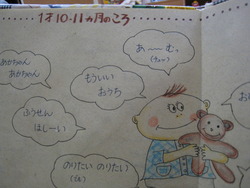 1才10-11ヵ月のころ
あ〜〜むっ
もういい
おうち
あかちゃん
あかちゃん
ふうせん
ほしーい
のりたい のりたい